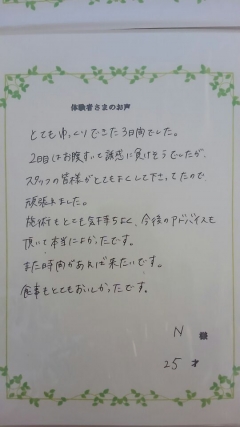 体験者さまのお声
とてもゆっくりできた3日間でした。
2日目はお腹すいて誘惑に負けそうでしたが、
スタッフの皆様がとてもよくして下さってたので、
頑張れました。
施術もとても気持ちよく、今後のアドバイスも
頂いて本当によかったです。
また時間があれば来たいです。
食事もとてもおいしかったです。
N 様
25 才